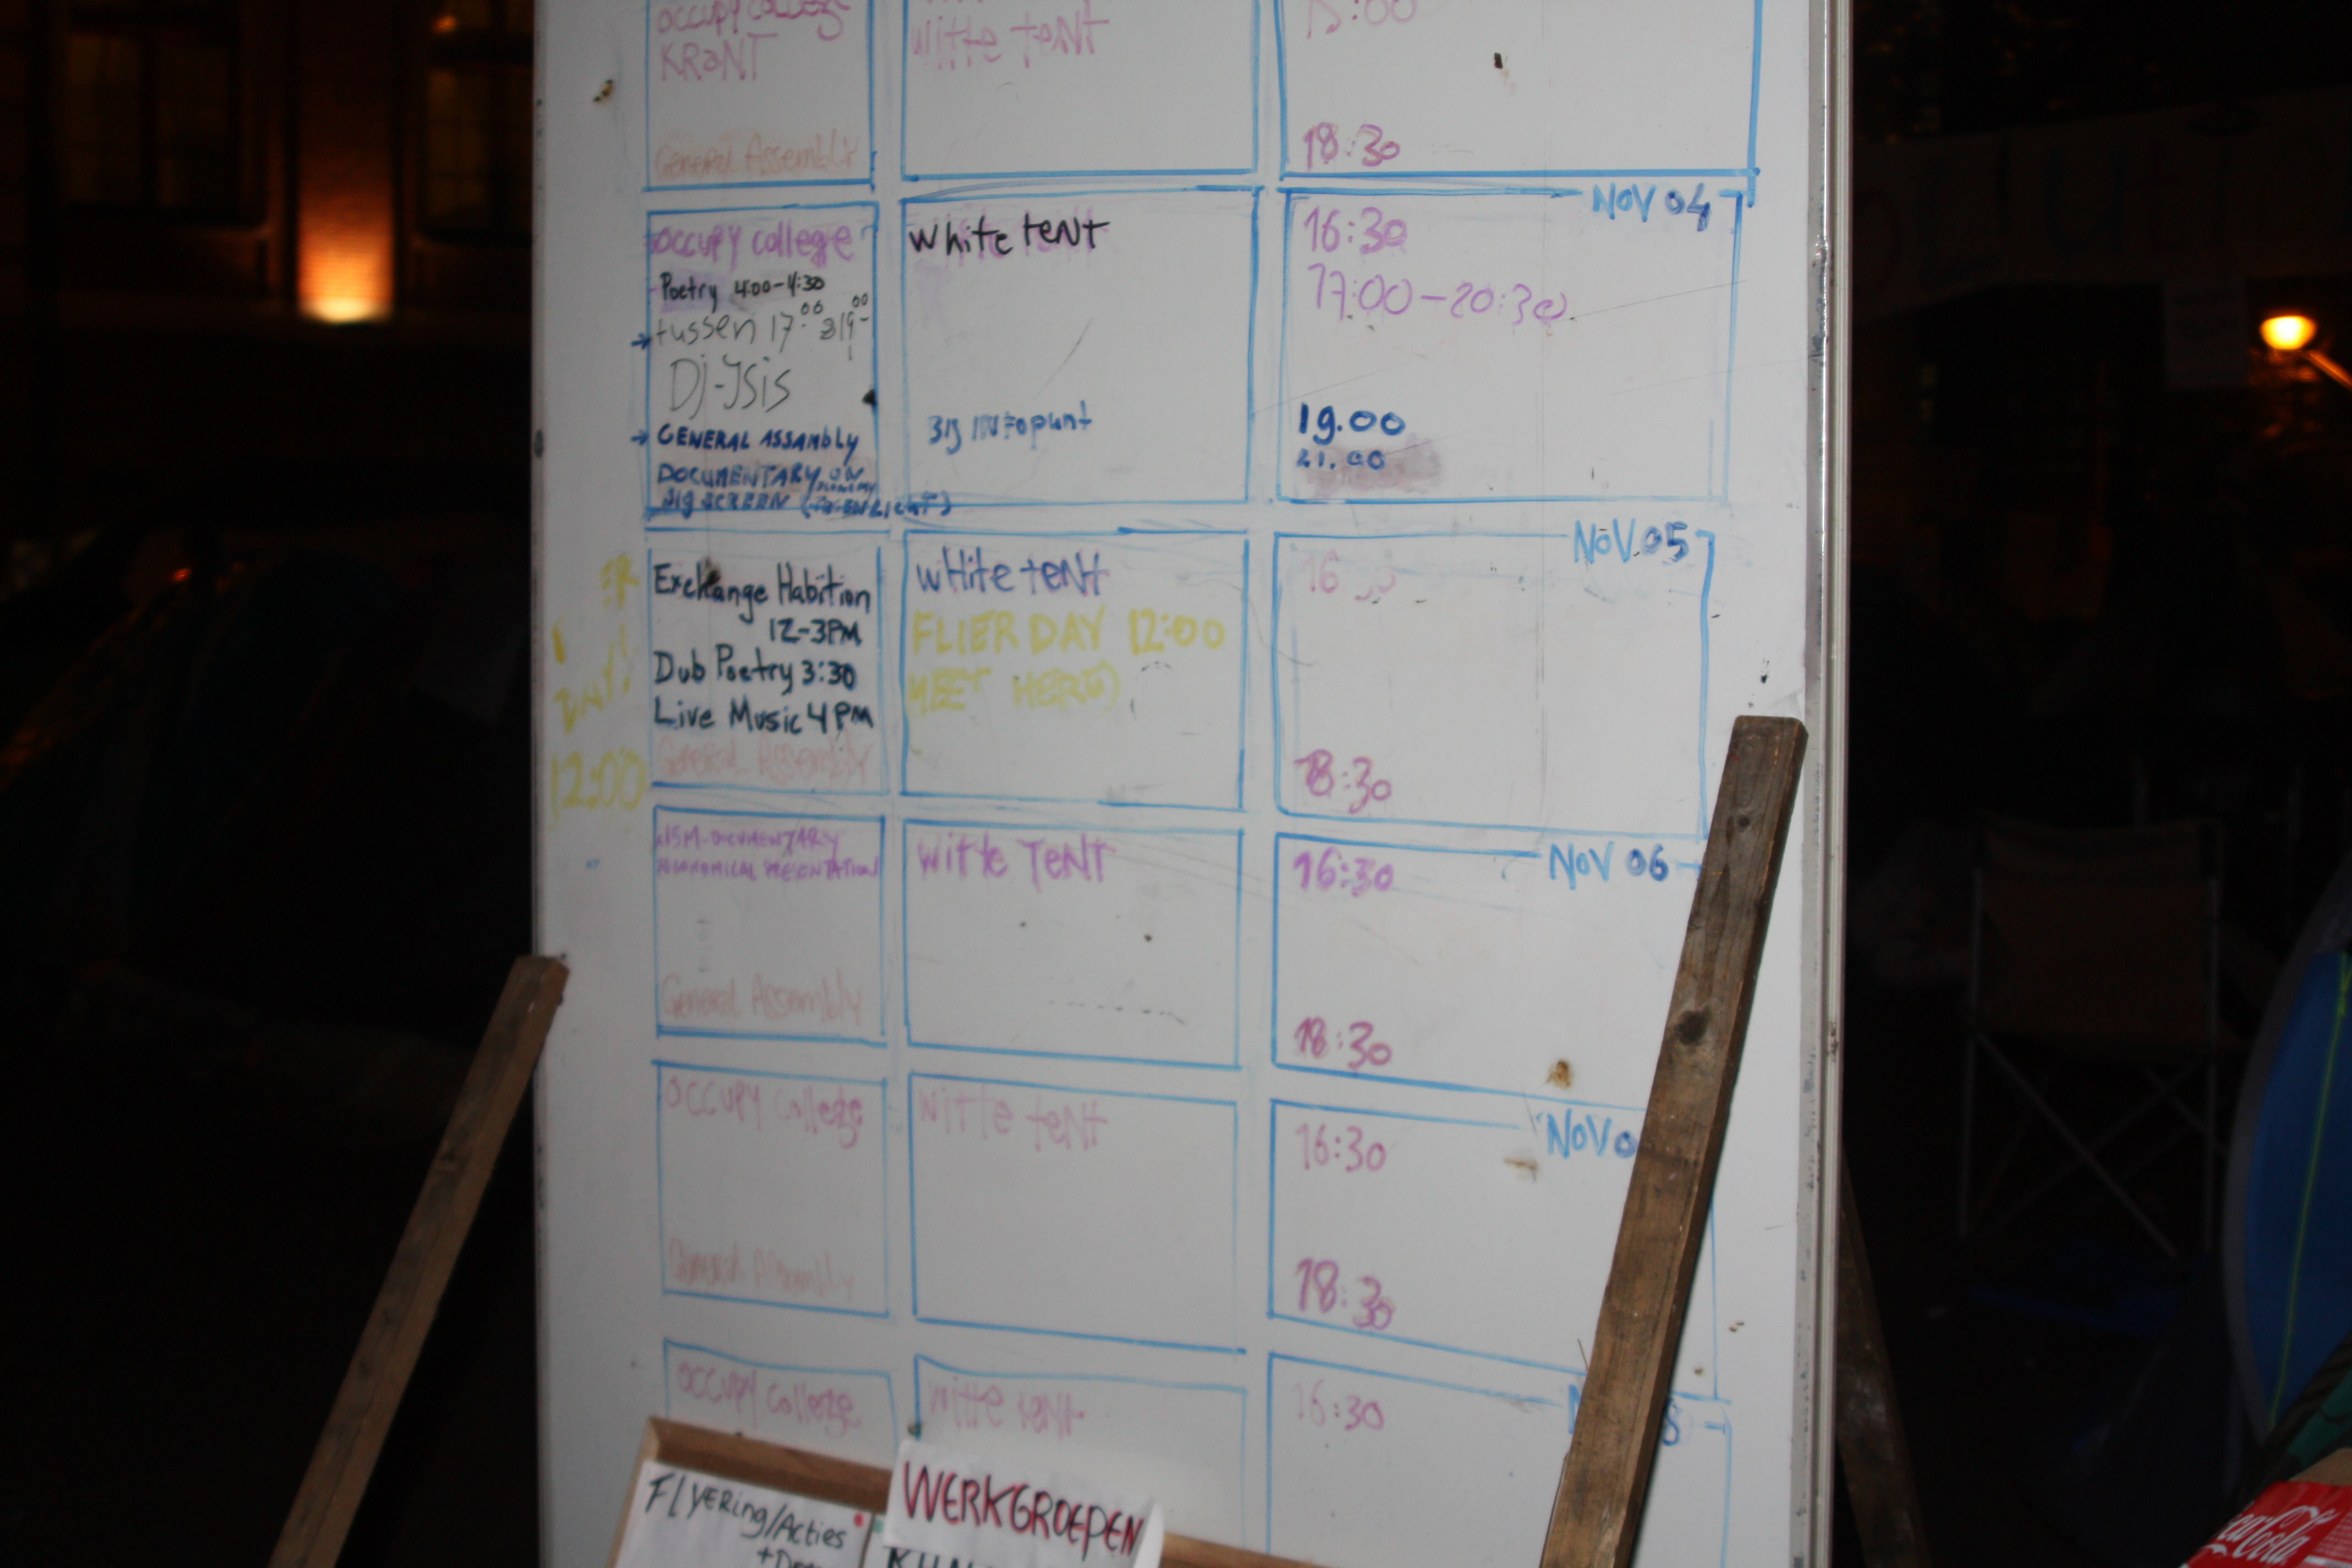 OCCUPY COLLEGE
KRaNT
General Assembly
Witte teNT
15:00
18:30
NOV 04
OCCUPY college
Poetry 4:00-4:30
tussen 17:00 19:00
Dj-Isis
GENERAL ASSAMBLY
DOCUMENTARY ON
BIG SCREEN
White teNT
BIJ INFOpunt
16:30
17:00-20:30
19.00
21.00
NOV.05
Exchange Habition
12-3PM
Dub Poetry 3:30
Live Music 4PM
General Assembly
12:00
WHite teNT
FLIER DAY 12:00
MEET HERE)
18:30
NOV 06
General Assembly
Witte TeNT
16:30
18:30
NOV 0
OCCUPY College
General Assembly
Witte teNT
16:30
18:30
OCCUPY College
Witte teNT
16:30
8
FLYERing/Acties
WERKGROEPEN